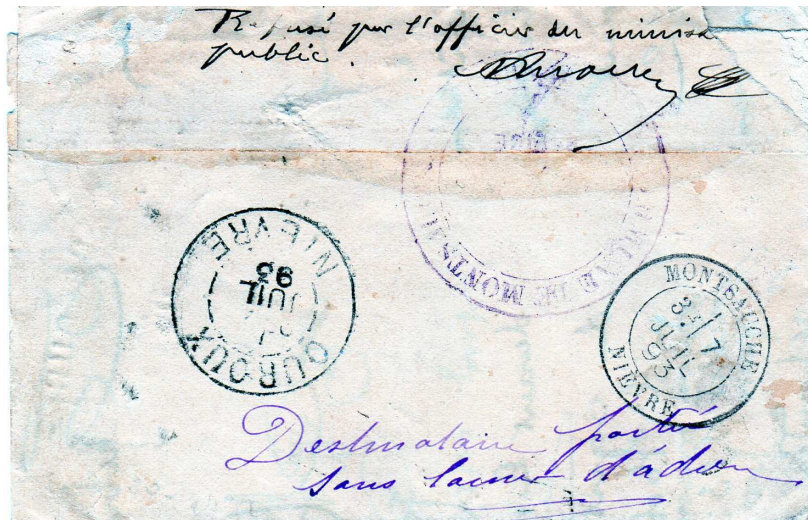 Refusé par l'officier du minis
public.
MAIRIE DE MONTSA
OUROUX
JUIL
93
NIEVRE
MONTSAUCHE
3E
7
JUIL
93
NIEVRE
Destinataire parti
sans laisser d'adresse